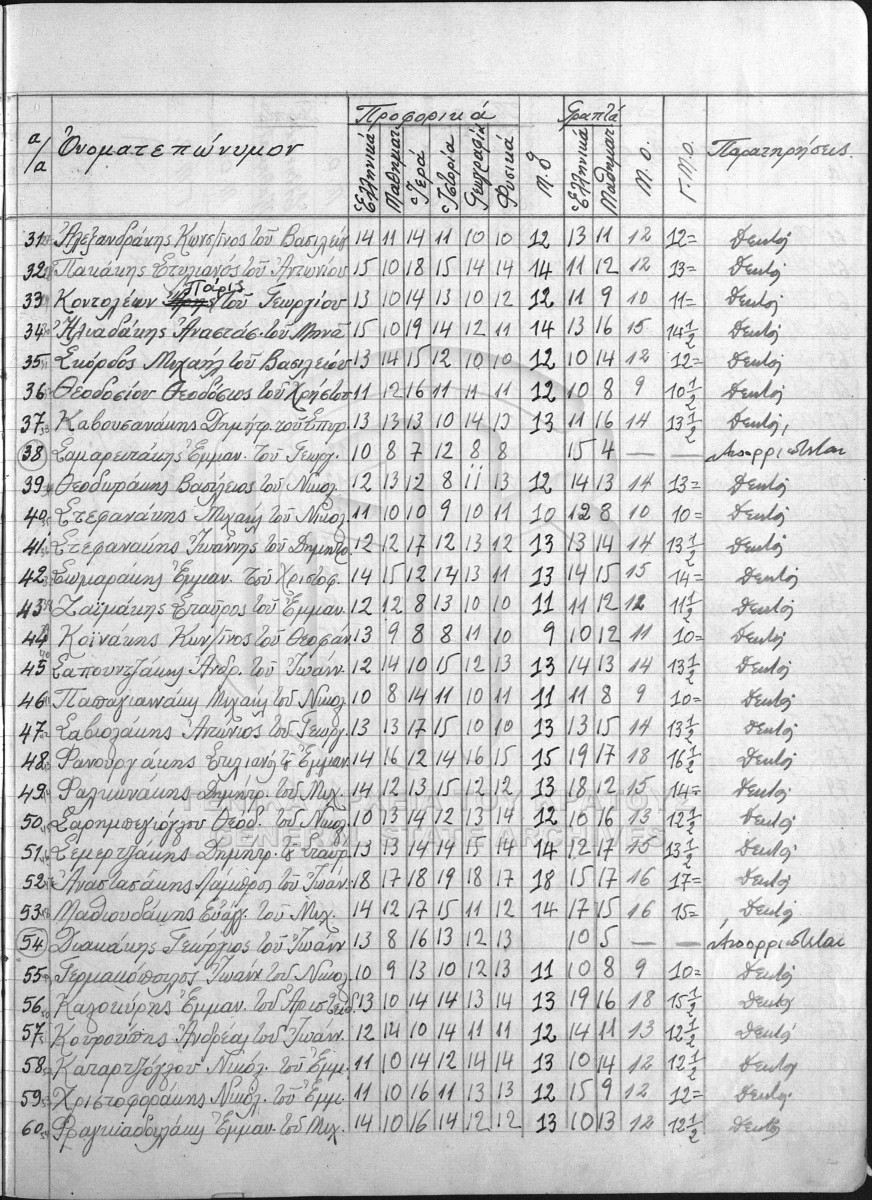 Προφορικά Γραπτά
α/α Ὀνοματεπώνυμον Ἑλληνικά Μαθηματ Ἱερά Ἱστορία Γεωγραφία Φυσικά Μ.Ο Ἑλληνικά Μαθηματ Μ.Ο. Γ.Μ.Ο. Παρατηρήσεις.
31 Ἀλεξανδράκης Κωνσ/ῖνος τοῦ Βασιλείου 14 11 14 11 10 10 12 13 11 12 12= Δεκτός
32 Πακάκης Στυλιανός τοῦ Ἀντωνίου 15 10 18 15 14 14 14 11 12 12 13= Δεκτός
33 Κοντολέων Πάρις τοῦ Γεωργίου 13 10 14 13 10 12 12 11 9 10 11= Δεκτός
34 Ἠλιαδάκης Ἀναστάσ. τοῦ Μηνᾶ 15 10 19 14 12 11 14 13 16 15 14½ Δεκτός
35 Σκόρδος Μιχαήλ τοῦ Βασιλείου 13 14 15 12 10 10 12 10 14 12 12= Δεκτός
36 Θεοδοσίου Θεοδόσιος τοῦ Χρήστου 11 12 16 11 11 11 12 10 8 9 10½ Δεκτός
37 Καβουσανάκης Δημήτρ. τοῦ Σπυρ. 13 13 13 10 14 13 13 11 16 14 13½ Δεκτός
38 Σαμαρειτάκης Ἐμμαν. τοῦ Γεωργ. 10 8 7 12 8 8 15 4 — — Ἀπορρίπτεται
39 Θεοδωράκης Βασίλειος τοῦ Νικολ. 12 13 12 8 11 13 12 14 13 14 13= Δεκτός
40 Στεφανάκης Μιχαήλ τοῦ Νικολ. 11 10 10 9 10 11 10 12 8 10 10= Δεκτός
41 Στεφανάκης Ἰωάννης τοῦ Δημητρ. 12 12 17 12 13 12 13 13 14 14 13½ Δεκτός
42 Σωμαράκης Ἐμμαν. τοῦ Χριστοφ. 14 15 12 14 13 11 13 14 15 15 14= Δεκτός
43 Ζαϊμάκης Σταῦρος τοῦ Ἐμμαν. 12 12 8 13 10 10 11 11 12 12 11½ Δεκτός
44 Κοϊνάκης Κων/ῖνος τοῦ Θεοφάν 13 9 8 8 11 10 9 10 12 11 10= Δεκτός
45 Σαπουντζάκης Ἀνδρ. τοῦ Ἰωάνν. 12 14 10 15 12 13 13 14 13 14 13½ Δεκτός
46 Παπαγιαννάκης Μιχαήλ τοῦ Νικολ. 10 8 14 11 10 11 11 11 8 9 10= Δεκτός
47 Σαβιολάκης Ἀντώνιος τοῦ Γεωργ. 13 13 17 15 10 10 13 13 15 14 13½ Δεκτός
48 Φανουργάκης Στυλιανός τ Ἐμμαν. 14 16 12 14 16 15 15 19 17 18 16½ Δεκτός
49 Φαλκωνάκης Δημήτρ. τοῦ Μιχ. 14 12 13 15 12 12 13 18 12 15 14= Δεκτός
50 Σαρημπεγιόγλου Θεόδ. τοῦ Νικολ. 10 13 14 12 13 14 12 10 16 13 12½ Δεκτός
51 Σεμερτζάκης Δημήτρ. τ Σταύρ. 13 13 14 14 15 14 14 12 17 15 13½ Δεκτός
52 Ἀναστασάκης Λάμπρος τοῦ Ἰωάν. 18 17 18 19 18 17 18 15 17 16 17= Δεκτός
53 Μαθιουδάκης Εὐάγ. τοῦ Μιχ. 14 12 17 15 11 12 14 17 15 16 15= Δεκτός
54 Διακάκης Γεώργιος τοῦ Ἰωάνν 13 8 16 13 12 13 10 5 — — Ἀπορρίπτεται
55 Γερμακόπουλος Ἰωάνν τοῦ Νικολ. 10 9 13 10 12 13 11 10 8 9 10= Δεκτός
56 Καλοκύρης Ἐμμαν. τοῦ Ἀριστείδ. 13 10 14 14 13 14 13 19 16 18 15½ Δεκτός
57 Κουρούπης Ἀνδρέας τοῦ Ἰωάνν. 12 14 10 14 11 11 12 14 11 13 12½ Δεκτός
58 Καπαρτζόγλου Νικόλ. τοῦ Ἐμμ. 11 10 14 12 14 14 13 10 14 12 12½ Δεκτός
59 Χριστοφοράκης Νικολ. τοῦ Ἐμμ. 11 10 16 11 13 13 12 15 9 12 12= Δεκτός
60 Φραγκιαδουλάκης Ἐμμαν. τοῦ Μιχ. 14 10 16 14 12 12 13 10 13 12 12½ Δεκτός
GENERAL STATE ARCHIVES